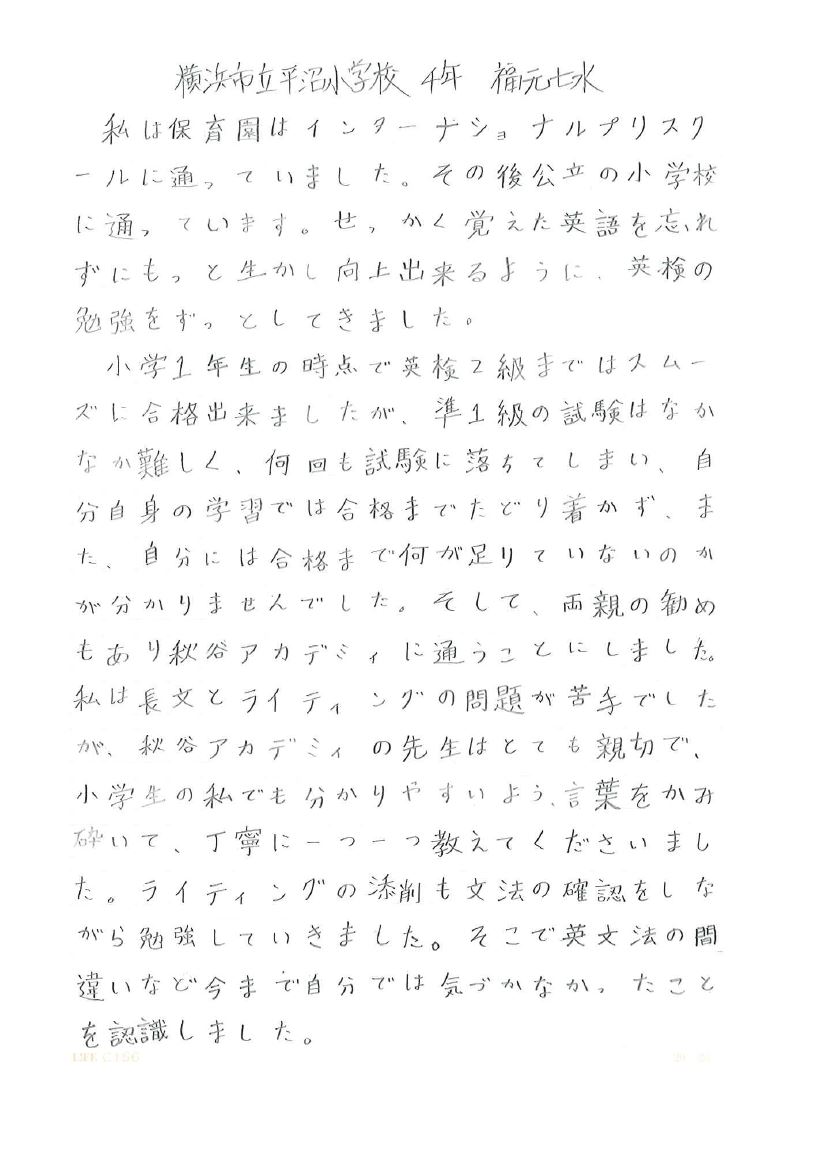 横浜市立平沼小学校 4年 福元七水
私は保育園はインターナショナルプリスク
ールに通っていました。その後公立の小学校
に通っています。せっかく覚えた英語を忘れ
ずにもっと生かし向上出来るように、英検の
勉強をずっとしてきました。
小学1年生の時点で英検2級まではスムー
ズに合格出来ましたが、準1級の試験はなか
なか難しく、何回も試験に落ちてしまい、自
分自身の学習では合格までたどり着かず、ま
た、自分には合格まで何が足りていないのか
が分かりませんでした。そして、両親の勧め
もあり秋谷アカデミィに通うことにしました。
私は長文とライティングの問題が苦手でした
が、秋谷アカデミィの先生はとても親切で、
小学生の私でも分かりやすいよう、言葉をかみ
砕いて、丁寧に一つ一つ教えてくださいまし
た。ライティングの添削も文法の確認をしな
がら勉強していきました。そこで英文法の間
違いなど今まで自分では気づかなかったこと
を認識しました。
LIFE C156